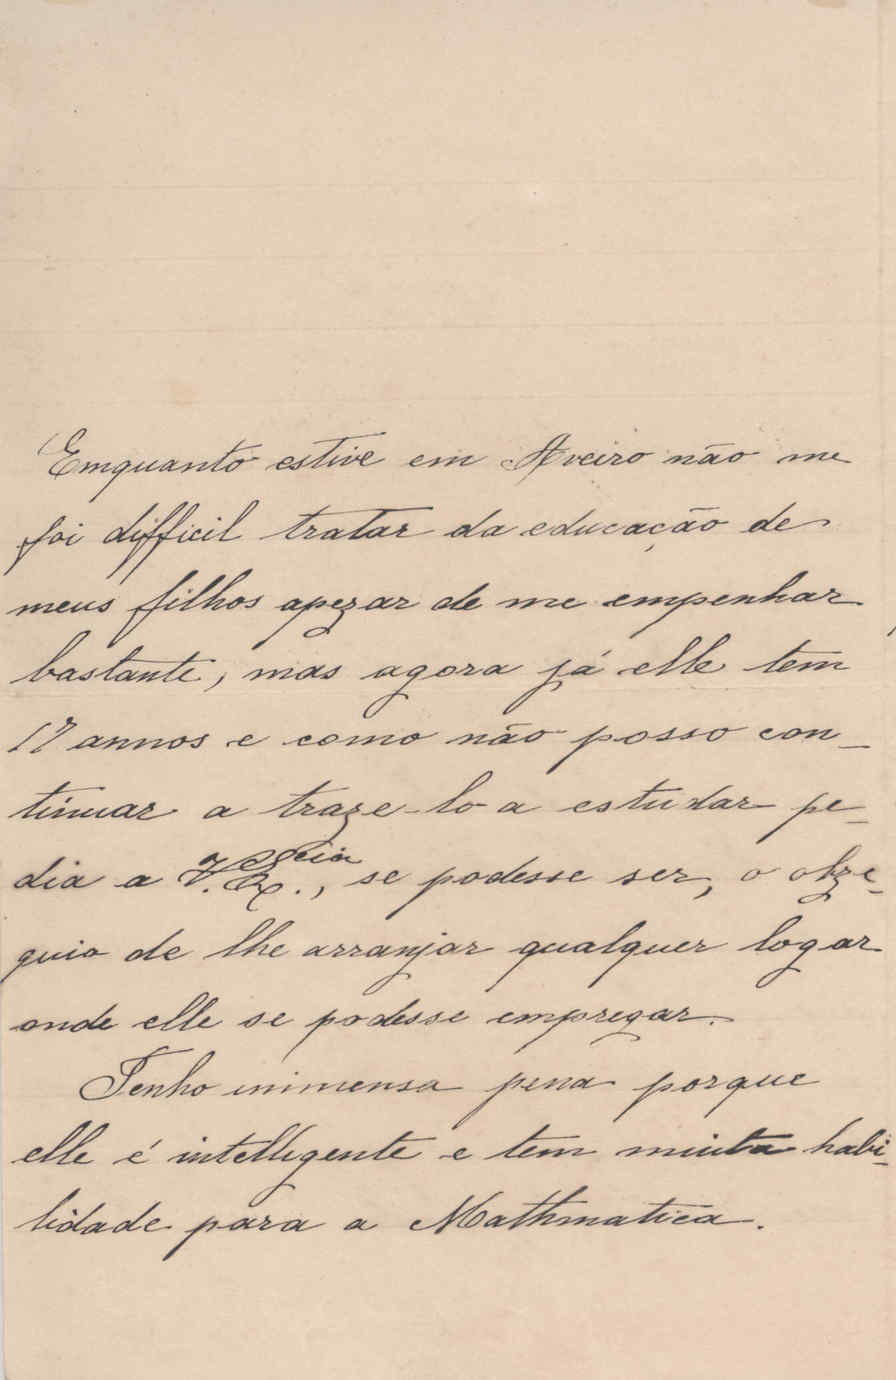 Emquanto estive em Aveiro não me
foi difficil tratar da educação de
meus filhos apezar de me empenhar
bastante, mas agora já elle tem
17 annos e como não posso con-
tinuar a traze-lo a estudar pe-
dia a V. Ex.cia, se podesse ser, o obze-
quio de lhe arranjar qualquer logar
onde elle se podesse empregar.
Tenho immensa pena porque
elle é intelligente e tem muita habi-
lidade para a Mathmatica.